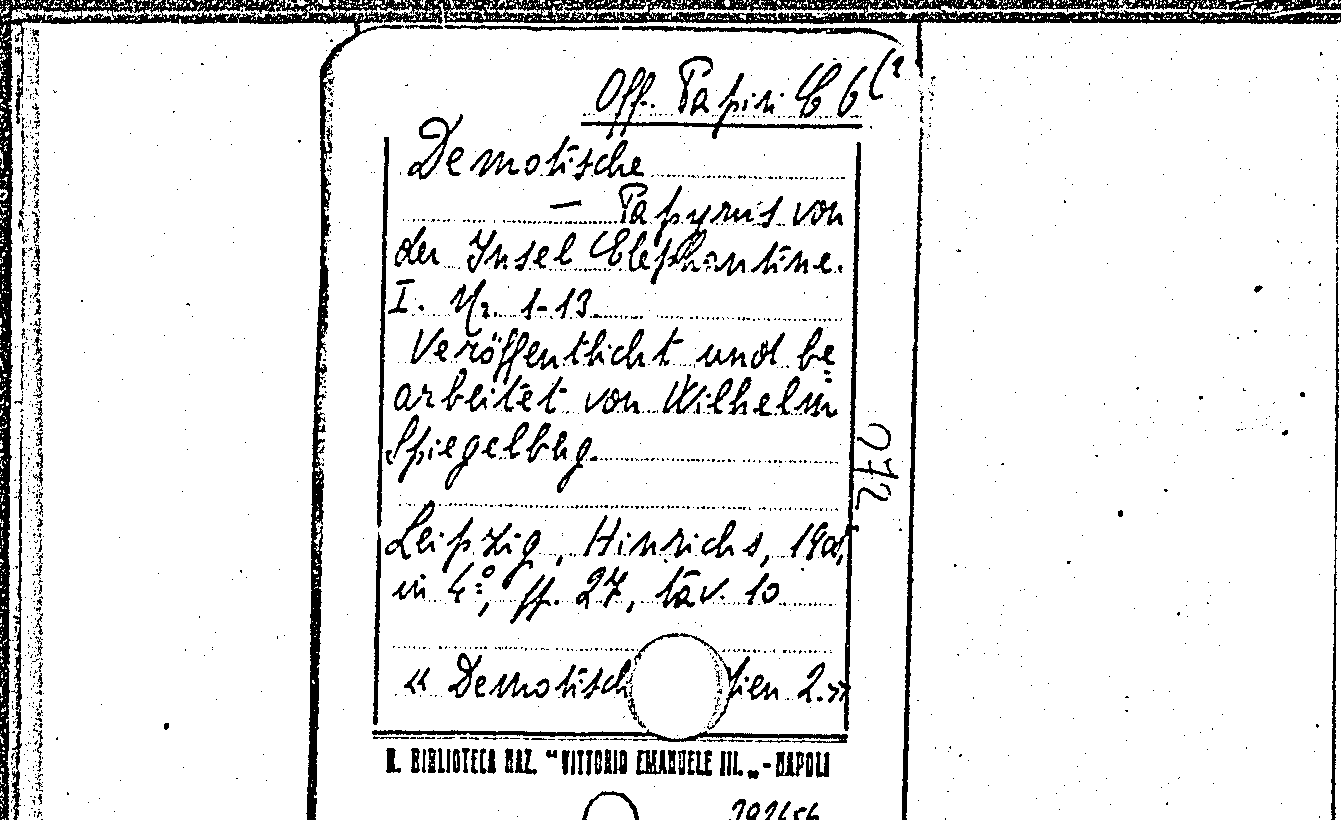 Off. Papiri C 6 (2
Demotische
— Papyrus von
der Insel Elephantine.
I. Nr. 1-13.
Veröffentlicht und be=
arbeitet von Wilhelm
Spiegelberg.
072
Leipzig, Hinrichs, 1908,
in 4º, pp. 27, tav. 10
« Demotisch dien 2.»
R. BIBLIOTECA NAZ. "VITTORIO EMANUELE III. „ - NAPOLI